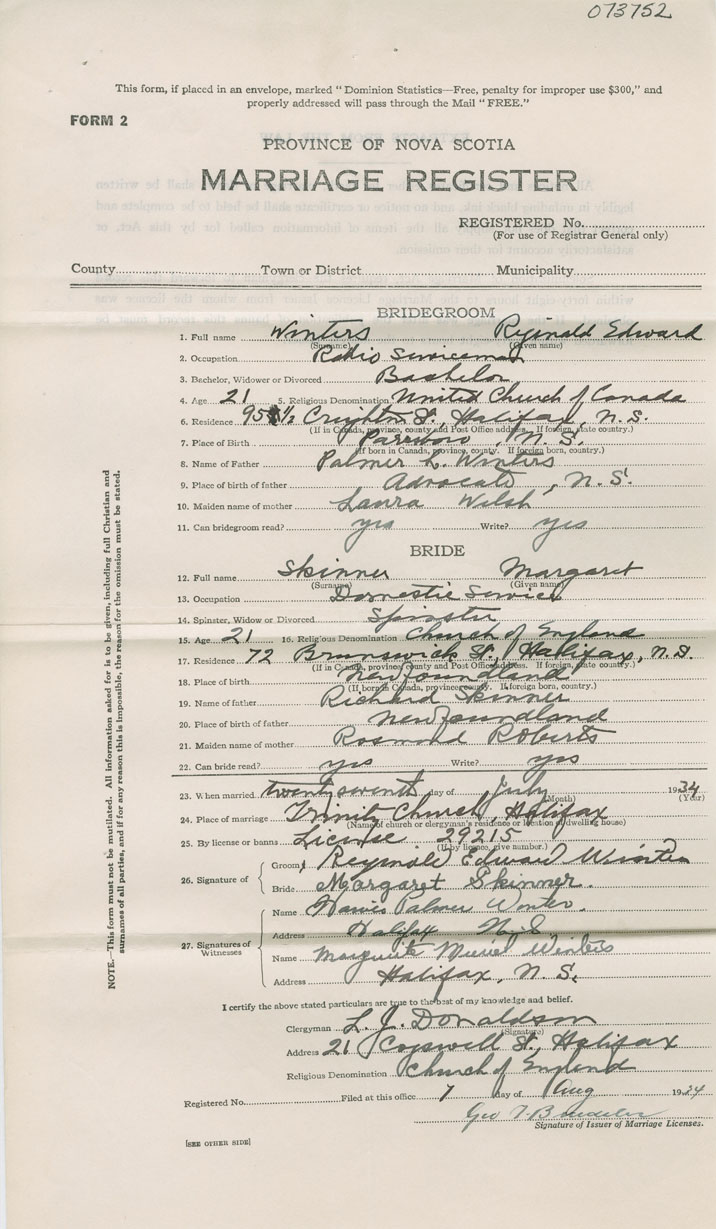 073752
This form, if placed in an envelope, marked "Dominion Statistics—Free, penalty for improper use $300," and
properly addressed will pass through the Mail "FREE."
FORM 2
PROVINCE OF NOVA SCOTIA
MARRIAGE REGISTER
REGISTERED No.
(For use of Registrar General only)
County Town or District Municipality
BRIDEGROOM
1. Full name Winters Reginald Edward
(Surname) (Given name)
2. Occupation Radio Serviceman
3. Bachelor, Widower or Divorced Bachelor
4. Age 21 5. Religious Denomination United Church of Canada
6. Residence 1/2 Creighton St., Halifax, N.S.
(If in Canada, province, county and Post Office address. If foreign, state country.)
7. Place of Birth Parrsboro, N.S.
(If born in Canada, province, county. If foreign born, country.)
8. Name of Father Palmer L. Winters
9. Place of birth of father Advocate, N.S.
10. Maiden name of mother Laura Welsh
11. Can bridegroom read? yes Write? yes
BRIDE
12. Full name Skinner Margaret
(Surname) (Given name)
13. Occupation Domestic Service
14. Spinster, Widow or Divorced Spinster
15. Age 21 16. Religious Denomination Church of England
17. Residence 72 Brunswick St., Halifax, N.S.
(If in Canada, province, county and Post Office address. If foreign, state country.)
18. Place of birth Newfoundland
(If born in Canada, province, county. If foreign born, country.)
19. Name of father Richard Skinner
20. Place of birth of father Newfoundland
21. Maiden name of mother Rosmond Roberts
22. Can bride read? yes Write? yes
23. When married twenty seventh day of July 1934
(Month) (Year)
24. Place of marriage Trinity Church, Halifax
(Name of church or clergyman's residence or location of dwelling house)
25. By license or banns License 29215
(If by licence, give number.)
26. Signature of
Groom Reginald Edward Winters
Bride Margaret Skinner.
27. Signatures of Witnesses
Name Palmer Winter.
Address Halifax N.S
Name Marguerite Muriel Winters
Address Halifax, N.S.
I certify the above stated particulars are true to the best of my knowledge and belief.
Clergyman L. J. Donaldson
(Signature)
Address 21 Cogswell St., Halifax
Religious Denomination Church of England
Registered No. Filed at this office 7 day of Aug 1934
Geo
Signature of Issuer of Marriage Licenses.
[SEE OTHER SIDE]
NOTE.—This form must not be mutilated. All information asked for is to be given, including full Christian and
surnames of all parties, and if for any reason this is impossible, the reason for the omission must be stated.